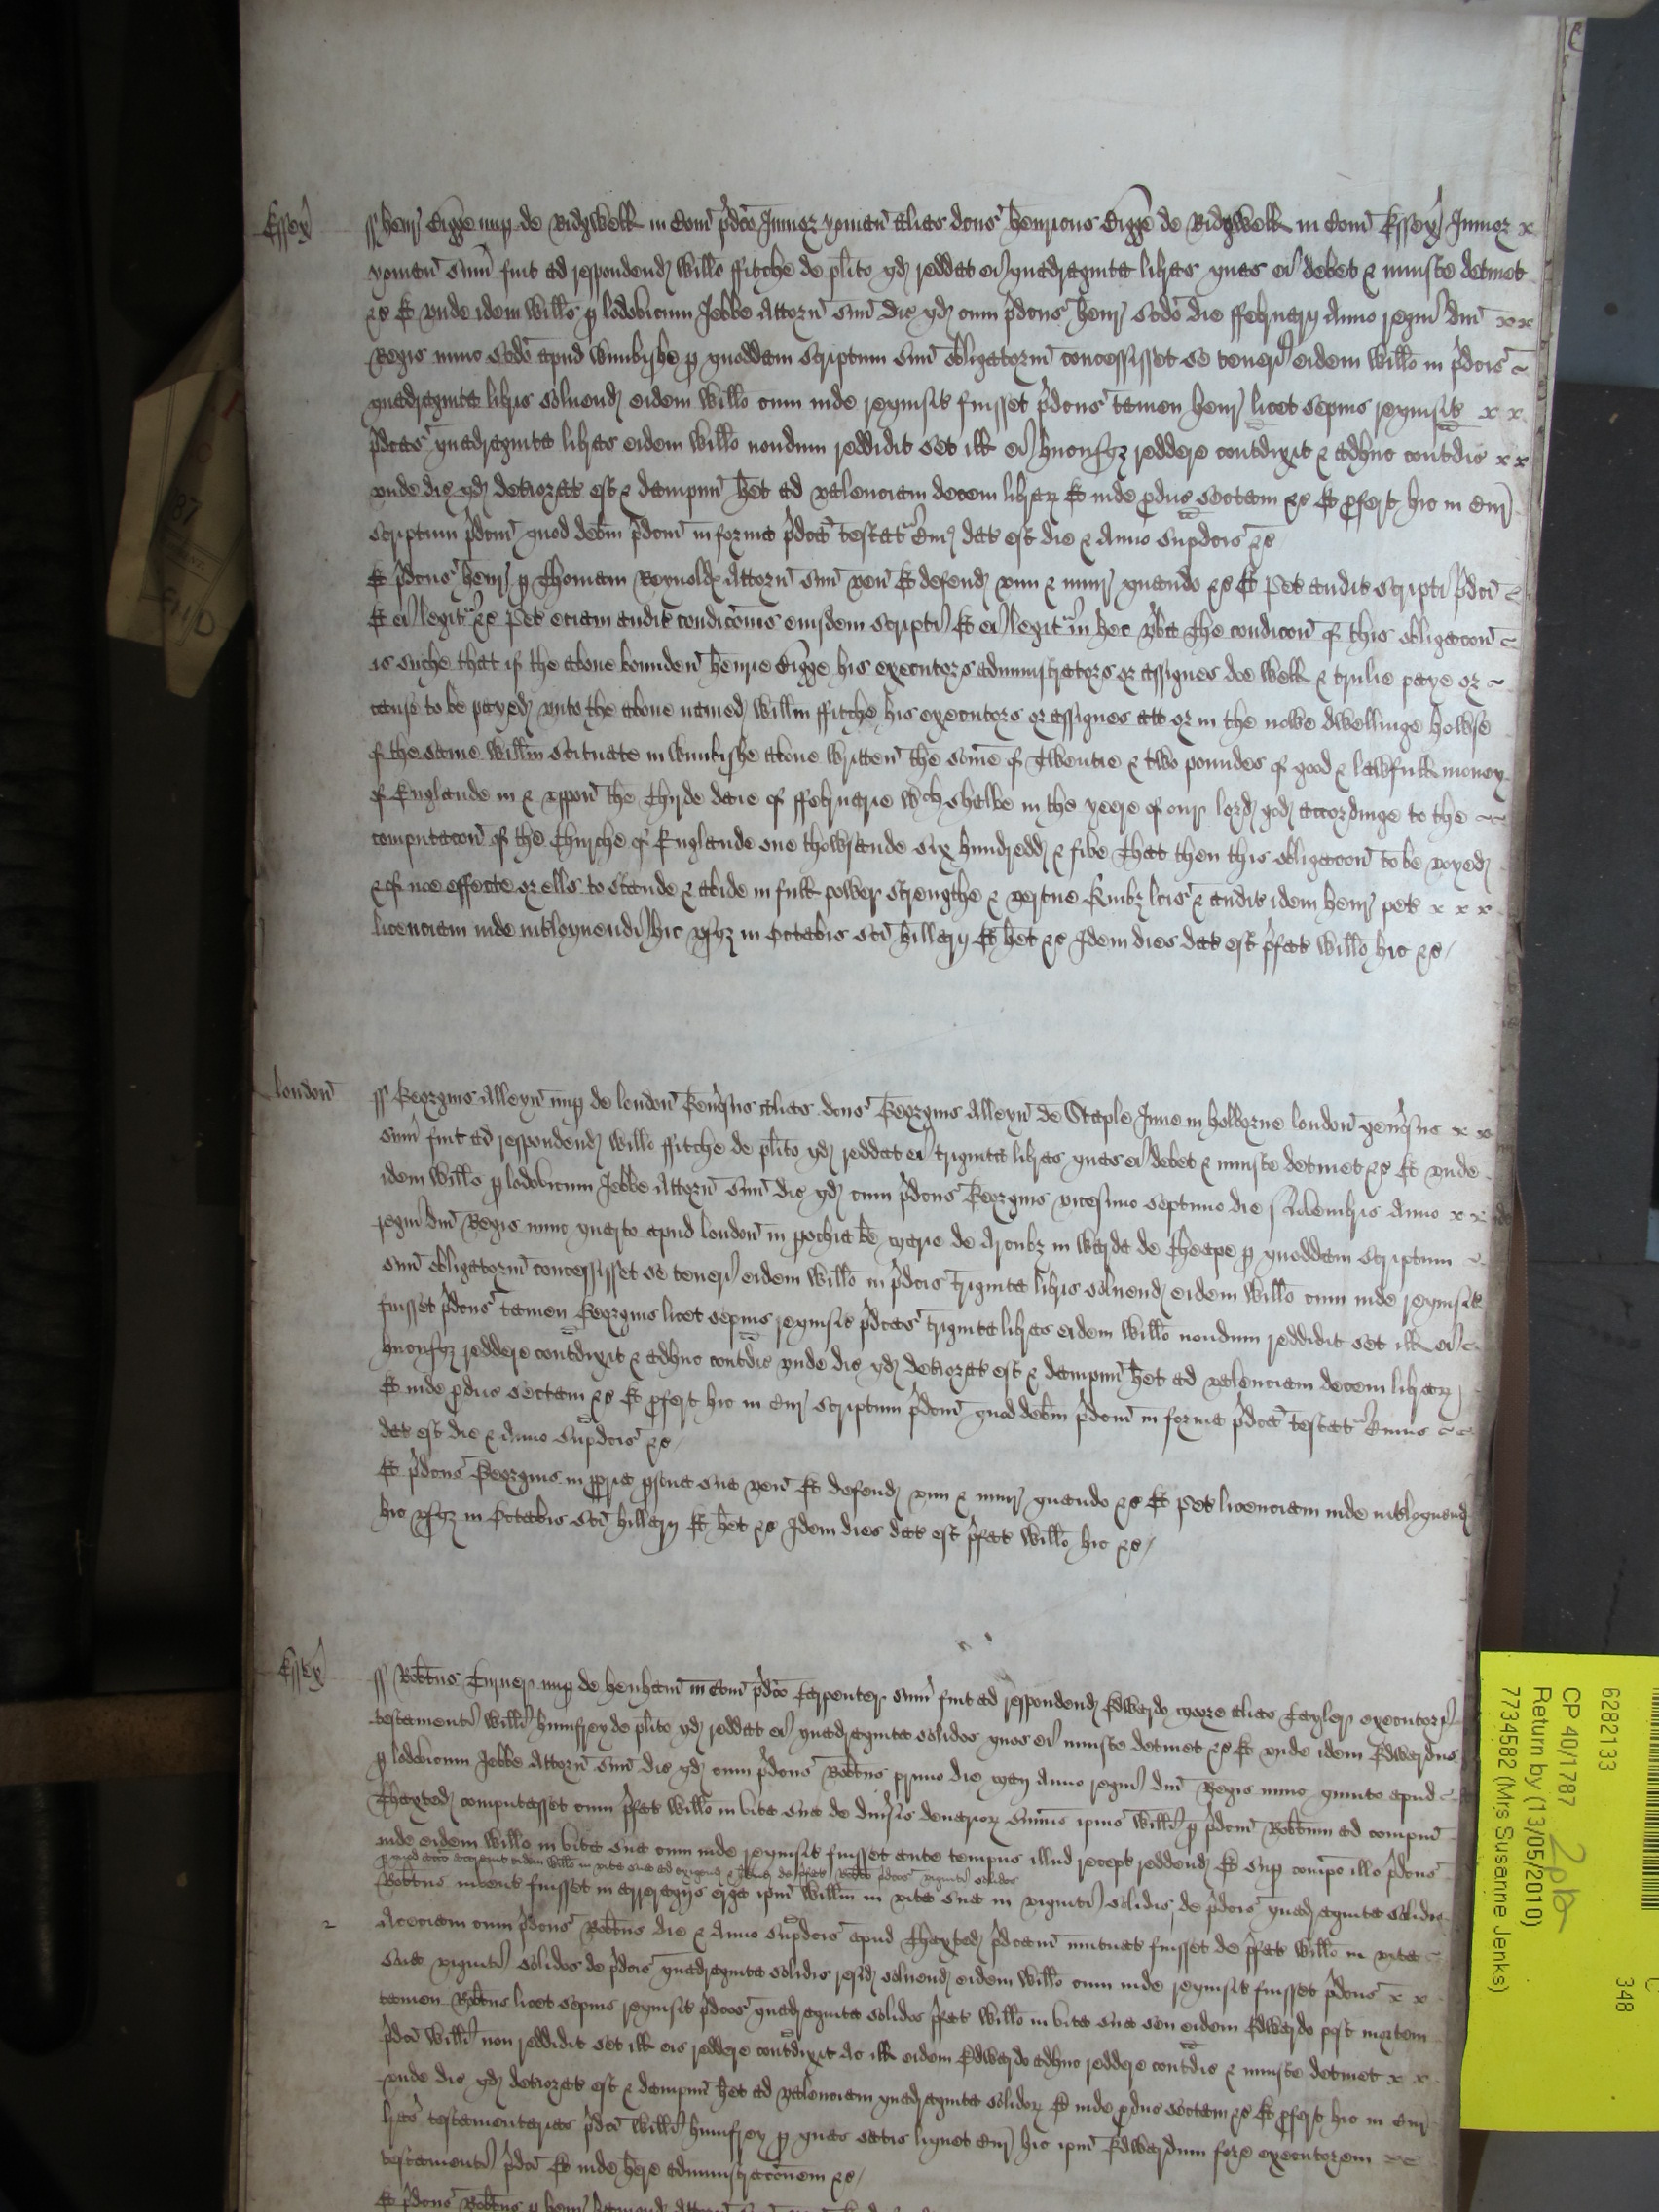 Essex
ss Henr Digge nup de Ridgwell in Com pdco Junior yoman alias dcus Henricus Digge de Ridgwell in Com Essex Junior x
yoman sum fuit ad respondend Willo ffitche de plito qd reddat ei quadraginta libras quas ei debet & iniuste detinet
&c Et unde idem Willus p lodovicum Jebbe Attorn suum dic qd cum pdcus Henr scdo die ffebruarij Anno regni dni x x
Regis nunc scdo apud Wimbyshe p quoddam scriptum suum obligatorium concessisset se teneri eidem Willo in pdcis
quadraginta libris solvend eidem Willo cum inde requisit fuisset pdcus tamen Henr licet sepius requisit x x
pdcas quadraginta libras eidem Willo nondum reddidit set ill ei hucusqz reddere contradixit & adhuc contradic x x
unde dic qd deteriorat est & dampnum het ad valenciam decem librarz Et inde produc sectam &c Et profert hic in Cur
scriptum pdcum quod debitum pdcum in forma pdca testatur Cuius dat est die & Anno supdcis &c
Et pdcus Henr p Thomam Reynolds Attorn suum ven Et defend vim & iniur quando &c Et Pet auditum scripti pdci
Et ei legitur &c Pet eciam auditum condicionis eiusdem scripti Et ei legitur in hec verba The condicon of this obligacon
is suche that if the above bounden Henrie Digge his executors administrators or assignes doe well & trulie paye or
cause to be payed unto the above named Willm ffitche his executors or assignes att or in the nowe dwellinge howse
of the same Willm scituate in Wimbyshe above written the some of Twentie & two poundes of good & lawfull money
of Englande in & uppon the Thirde daie of ffebruarie wch shalbe in the yeere of our lord god accordinge to the
computacon of the Churche of Englande one thowsande six hundredd & five That then this obligacon to be voyed
& of noe effecte or ells to stande & abide in full power strengthe & vertue Quibz lcis & auditis idem Henr pet x x x
licenciam inde interloquendi hic usqz in Octabis sci Hillarij Et het &c Idem dies dat est pfat Willo hic &c
london
ss Georgius Alleyn nup de london Generosus alias dcus Georgius Alleyn de Staple Inne in holborne london generosus x x
sum fuit ad respondend Willo ffitche de plito qd reddat ei triginta libras quas ei debet & iniuste detinet &c Et unde
idem Willus p lodovicum Jebbe Attorn suum dic qd cum pdcus Georgius vicesimo septimo die Novembris Anno x x
regni dni Regis nunc quarto apud london in pochia be marie de Arcubz in warda de Cheape p quoddam scriptum
suum obligatorium concessisset se teneri eidem Willo in pdcis triginta libris solvend eidem Willo cum inde requisit
fuisset pdcus tamen Georgius licet sepius requisit pdcas triginta libras eidem Willo nondum reddidit set ill ei
hucusqz reddere contradixit & adhuc contradic unde dic qd deteriorat est & dampnum het ad valenciam decem librarz
Et inde produc sectam &c Et profert hic in Cur scriptum pdcum quod debitum pdcum in forma pdca testatur Cuius
dat est die & Anno supdcis &c
Et pdcus Georgius in propria psona sua ven Et defend vim & iniur quando &c Et Pet licenciam inde interloquend
hic usqz in Octabis sci Hillarij Et het &c Idem dies dat est pfat Willo hic &c
Essex
ss Robtus Turner nup de henham in Com pdco Carpenter sum fuit ad respondend Edwardo moore alias Tayler executori
testamenti Willi humfrey de plito qd reddat ei quadraginta solidos quos ei iniuste detinet &c Et unde idem Edwardus
p lodovicum Jebbe Attorn suum dic qd cum pdcus Robtus primo die may Anno regni dni Regis nunc quinto apud
Thaxted computasset cum pfat Willo in vita sua de diversis denariorz summis ipius Willi p pdcum Robtum ad compum
inde eidem Willo in vita sua cum inde requisit fuisset ante tempus illud recept reddend Et sup compo illo pdcus
Robtus invent fuisset in arreragijs erga ipm Willm in vita sua in viginti solidis de pdcis quadraginta solidis
2
Aceciam cum pdcus Robtus die & Anno supdcis apud Thaxted pdcam mutuat fuisset de pfat Willo in vita
sua viginti solidos de pdcis quadraginta solidis resid solvend eidem Willo cum inde requisit fuisset pdcus x x
tamen Robtus licet sepius requisit pdcos quadraginta solidos pfat Willo in vita sua seu eidem Edwardo post mortem
pdci Willi non reddidit set ill eis reddere contradixit Ac ill eidem Edwardo adhuc reddere contradic & iniuste detinet x x
unde dic qd deteriorat est & dampnum het ad valenciam quadraginta solidorz Et inde produc sectam &c Et profert hic in Cur
lras testamentarias pdci Willi humfrey p quas satis liquet Cur hic ipm Edwardum fore executorem
testamenti pdci Et inde here administracionem &c
Et pdcus Robtus p Henr
6282133
CP 40/1787
2pb
Return by (13/05/2010)
7734582 (Mrs Susanne Jenks)
348